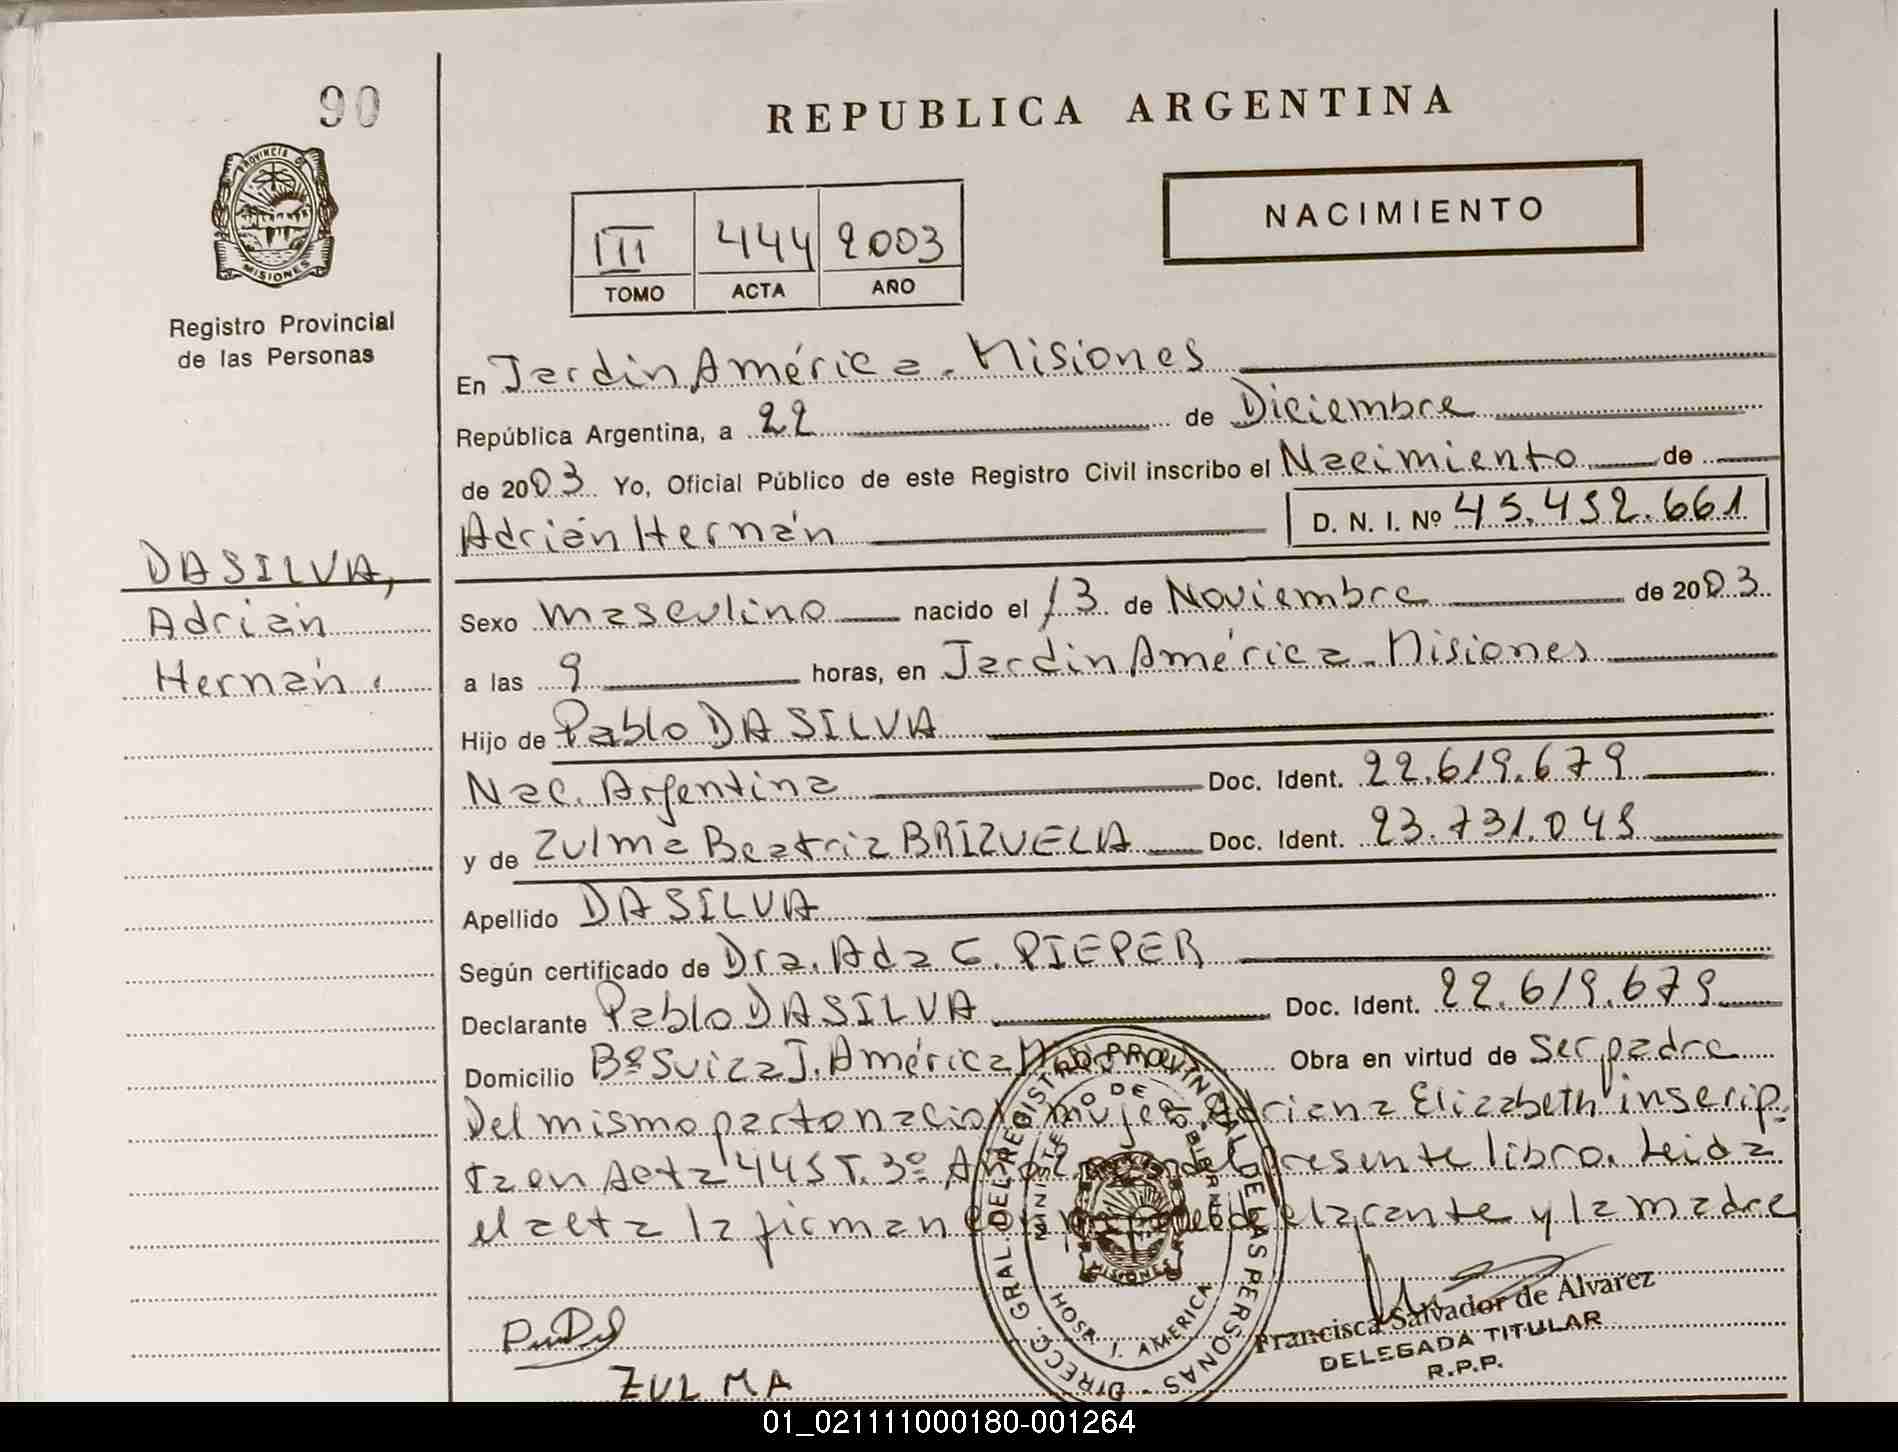 90
REPUBLICA ARGENTINA
PROVINCIA DE
MISIONES
Registro Provincial
de las Personas
NACIMIENTO
III 444 2003
TOMO ACTA AÑO
En Jardín América - Misiones
República Argentina, a 22 de Diciembre
de 2003 Yo, Oficial Público de este Registro Civil inscribo el Nacimiento de
Adrián Hernán D. N. I. Nº 45.452.661
DA SILVA,
Adrián
Hernán.
Sexo Masculino nacido el 13 de Noviembre de 2003
a las 9 horas, en Jardín América - Misiones
Hijo de Pablo DA SILVA
Nac. Argentina Doc. Ident. 22.619.679
y de Zulma Beatriz BRIZUELA Doc. Ident. 23.731.045
Apellido DA SILVA
Según certificado de Dra. Ada C. PIEPER
Declarante Pablo DA SILVA Doc. Ident. 22.619.679
Domicilio Bº Suiza J. América Obra en virtud de ser padre
Del mismo parto nació mujer Adriana Elizabeth inscrip-
ta en Acta 445 T. 3º Año presente libro. Leida
el acta la firman declarante y la madre
DIRECC. GRAL. DEL REGISTRO PROVINCIAL DE LAS PERSONAS
MINISTERIO DE GOBIERNO
MISIONES
HOSP. J. AMERICA
Francisca Salvador de Alvarez
DELEGADA TITULAR
R.P.P.
ZULMA
01_021111000180-001264